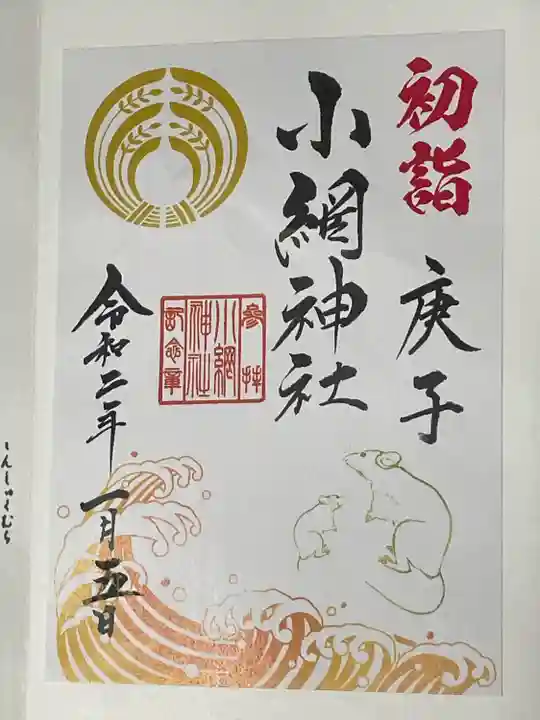 初詣
庚子
小網神社
參拝
小網
神社
記念章
令和二年一月五日